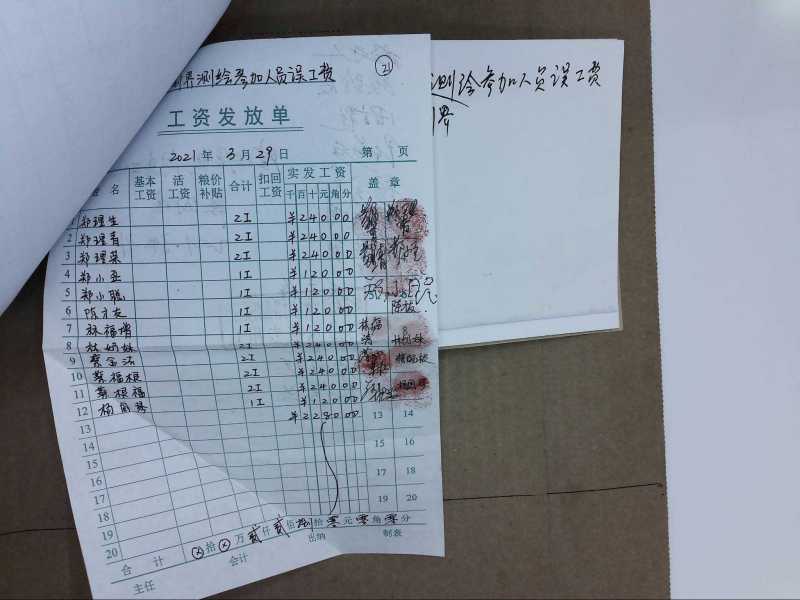 界测绘参加人员误工费 21
测绘参加人员误工费
界
工资发放单
2021年3月29日 第 页
名 基本工资 活工资 粮价补贴 合计 扣回工资 实发工资 盖章
千百十元角分
郑理生 2工 ¥24000
2 郑理青 2工 ¥24000
3 郑理菜 2工 ¥24000
4 郑小亚 1工 ¥12000
5 郑小聪 1工 ¥12000
6 陈才友 1工 ¥12000
7 林福增 1工 ¥12000
8 林娟妹 2工 ¥24000
9 2工 ¥24000
10 蔡福根 2工 ¥24000
11 蔡根福 2工 ¥24000
12 杨 1工 ¥12000
¥228000
13 13 14
14
15 15 16
16
17 17 18
18
19 19 20
20
合计 拾 万贰仟贰佰捌拾零元零角零分
主任 会计 出纳 制表